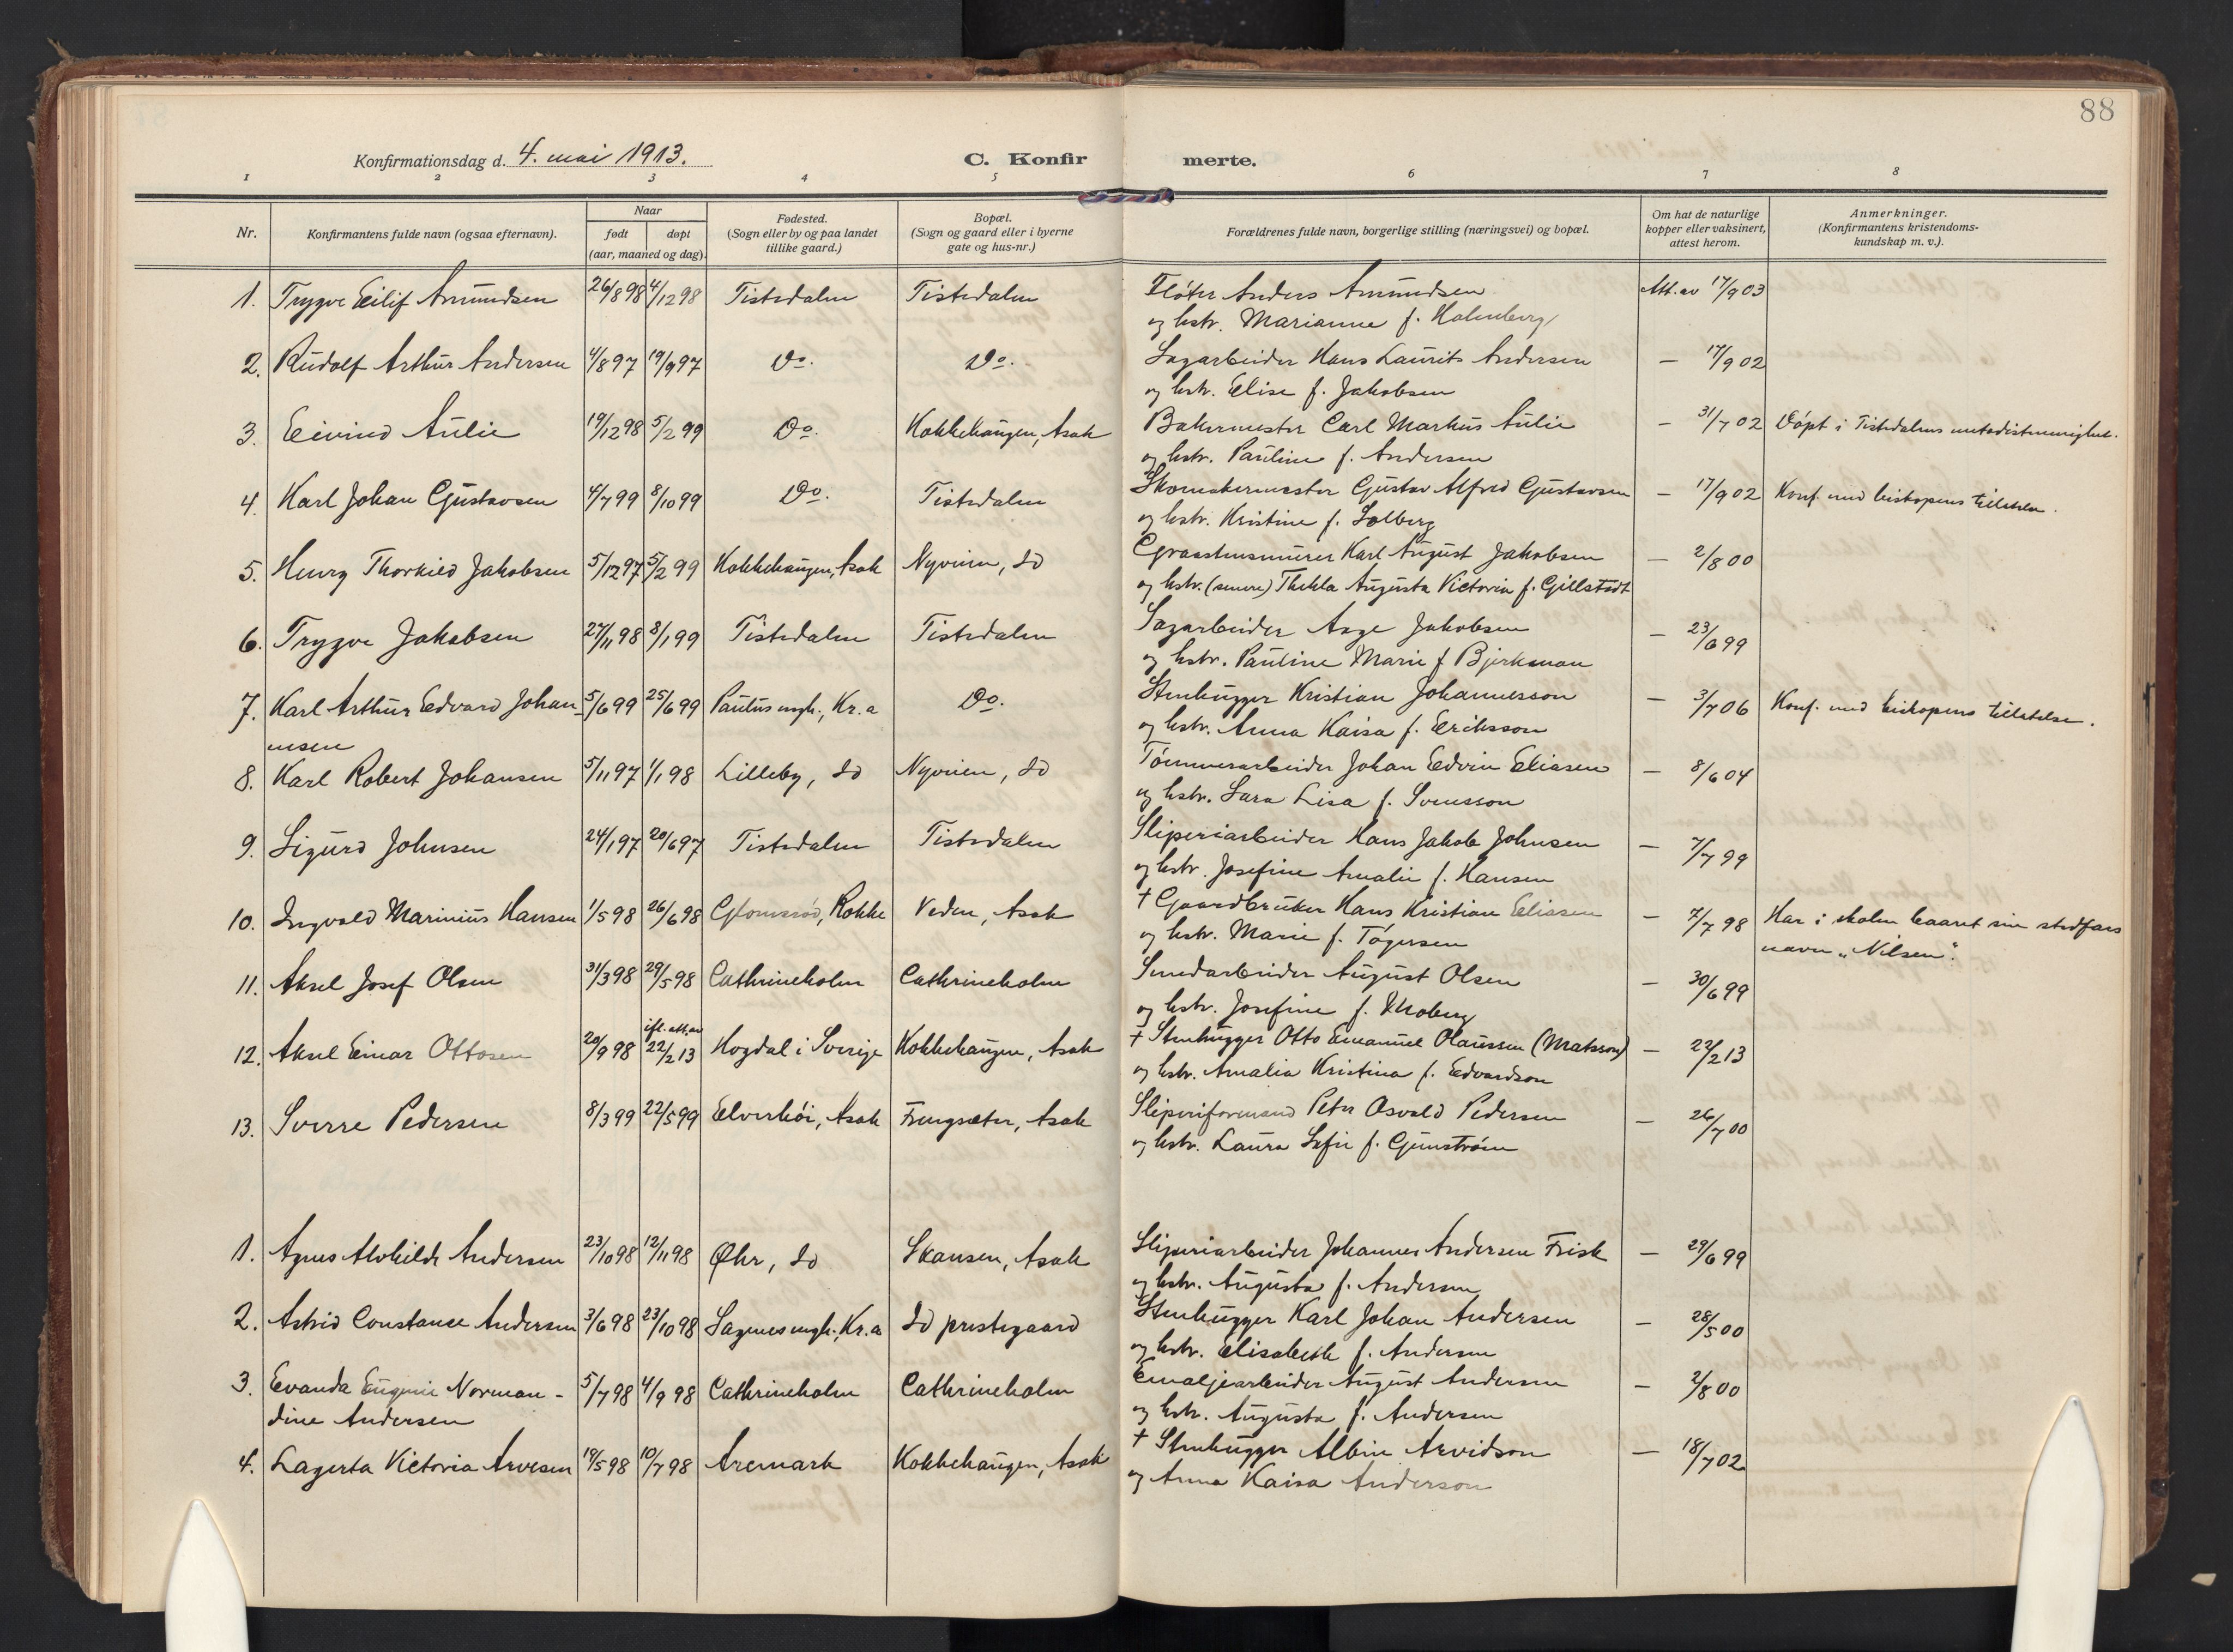 88
Konfirmationsdag d. 4. mai 1913.
C. Konfirmerte.
1 2 3 4 5 6 7 8
Nr.
Konfirmantens fulde navn (ogsaa efternavn).
Naar
født døpt
(aar, maaned og dag).
Fødested.
(Sogn eller by og paa landet
tillike gaard.)
Bopæl.
(Sogn og gaard eller i byerne
gate og hus-nr.)
Forældrenes fulde navn, borgerlige stilling (næringsvei) og bopæl.
Om hat de naturlige
kopper eller vaksinert,
attest herom.
Anmerkninger.
(Konfirmantens kristendoms-
kundskap m. v.).
1. Trygve Eilif Amundsen 26/8 98 4/12 98 Tistedalen Tistedalen Fløter Anders Amundsen Att. av 17/9 03
og hstr. Marianne f. Holmberg
2. Rudolf Arthur Andersen 4/8 97 19/9 97 Do. Do. Sagarbeider Hans Laurits Andersen — 17/9 02
og hstr. Elise f. Jakobsen
3. Eivind Aulie 19/12 98 5/2 99 Do. Kokkehaugen, Asak Bakermester Carl Markus Aulie — 31/7 02 Døpt i Tistedalens metodistmenighet.
og hstr. Pauline f. Andersen
4. Karl Johan Gustavsen 4/7 99 8/10 99 Do. Tistedalen Skomakermester Gustav Alfred Gustavsen — 17/9 02 Konf. med biskopens tillatelse.
og hstr. Kristine f. Solberg
5. Henry Thorkild Jakobsen 5/12 97 5/2 99 Kokkehaugen, Asak Nyveien, Id Graastensmurer Karl August Jakobsen — 2/8 00
og hstr. (senere) Thekla Augusta Victoria f. Gillstedt
6. Trygve Jakobsen 27/11 98 8/1 99 Tistedalen Tistedalen Sagarbeider Aage Jakobsen — 23/6 99
og hstr. Pauline Marie f. Bjerkman
7. Karl Arthur Edvard Johan- 5/6 99 25/6 99 Paulus mgh., Kr.a Do. Stenhugger Kristian Johannesson — 3/7 06 Konf. med biskopens tillatelse.
nsen og hstr. Anna Kaisa f. Eriksson
8. Karl Robert Johansen 5/11 97 1/1 98 Lilleby, Id Nyveien, Id Tømmerarbeider Johan Edvin Eliasen — 8/6 04
og hstr. Sara Lisa f. Svensson
9. Sigurd Johnsen 24/1 97 20/6 97 Tistedalen Tistedalen Sliperiarbeider Hans Jakob Johnsen — 7/7 99
og hstr. Josefine Amalie f. Hansen
10. Ingvald Marinius Hansen 1/5 98 26/6 98 Glomsrød, Rokke Veden, Asak † Gaardbruker Hans Kristian Eliassen — 7/7 98 Har i skolen baaret sin stedfars
og hstr. Marie f. Tøgersen navn „Nilsen".
11. Aksel Josef Olsen 31/3 98 29/5 98 Cathrineholm Cathrineholm Smedarbeider August Olsen — 30/6 99
og hstr. Josefine f. Moberg
12. Aksel Einar Ottosen 20/9 98 ifl. att. av 22/2 13 Hogdal i Sverige Kokkehaugen, Asak † Stenhugger Otto Emanuel Olaussen (Matsson) — 22/2 13
og hstr. Amalia Kristina f. Edvardson
13. Sverre Pedersen 8/3 99 22/5 99 Elverhøi, Asak Fengsæter, Asak Sliperiformand Peter Osvald Pedersen — 26/7 00
og hstr. Laura Sofie f. Gunstrøm
1. Agnes Alvhilde Andersen 23/10 98 12/11 98 Øhr, Id Skansen, Asak Sliperiarbeider Johannes Andersen Frisk — 29/6 99
og hstr. Augusta f. Andersen
2. Astrid Constance Andersen 3/6 98 23/10 98 Sagenes mgh., Kr.a Id prestegaard Stenhugger Karl Johan Andersen — 28/5 00
og hstr. Elisabeth f. Andersen
3. Evanda Eugenie Norman- 5/7 98 4/9 98 Cathrineholm Cathrineholm Emaljearbeider August Andersen — 2/8 00
dine Andersen og hstr. Augusta f. Andersen
4. Lagerta Victoria Arvesen 19/5 98 10/7 98 Aremark Kokkehaugen, Asak † Stenhugger Albin Arvidson — 18/7 02
og Anna Kaisa Anderson